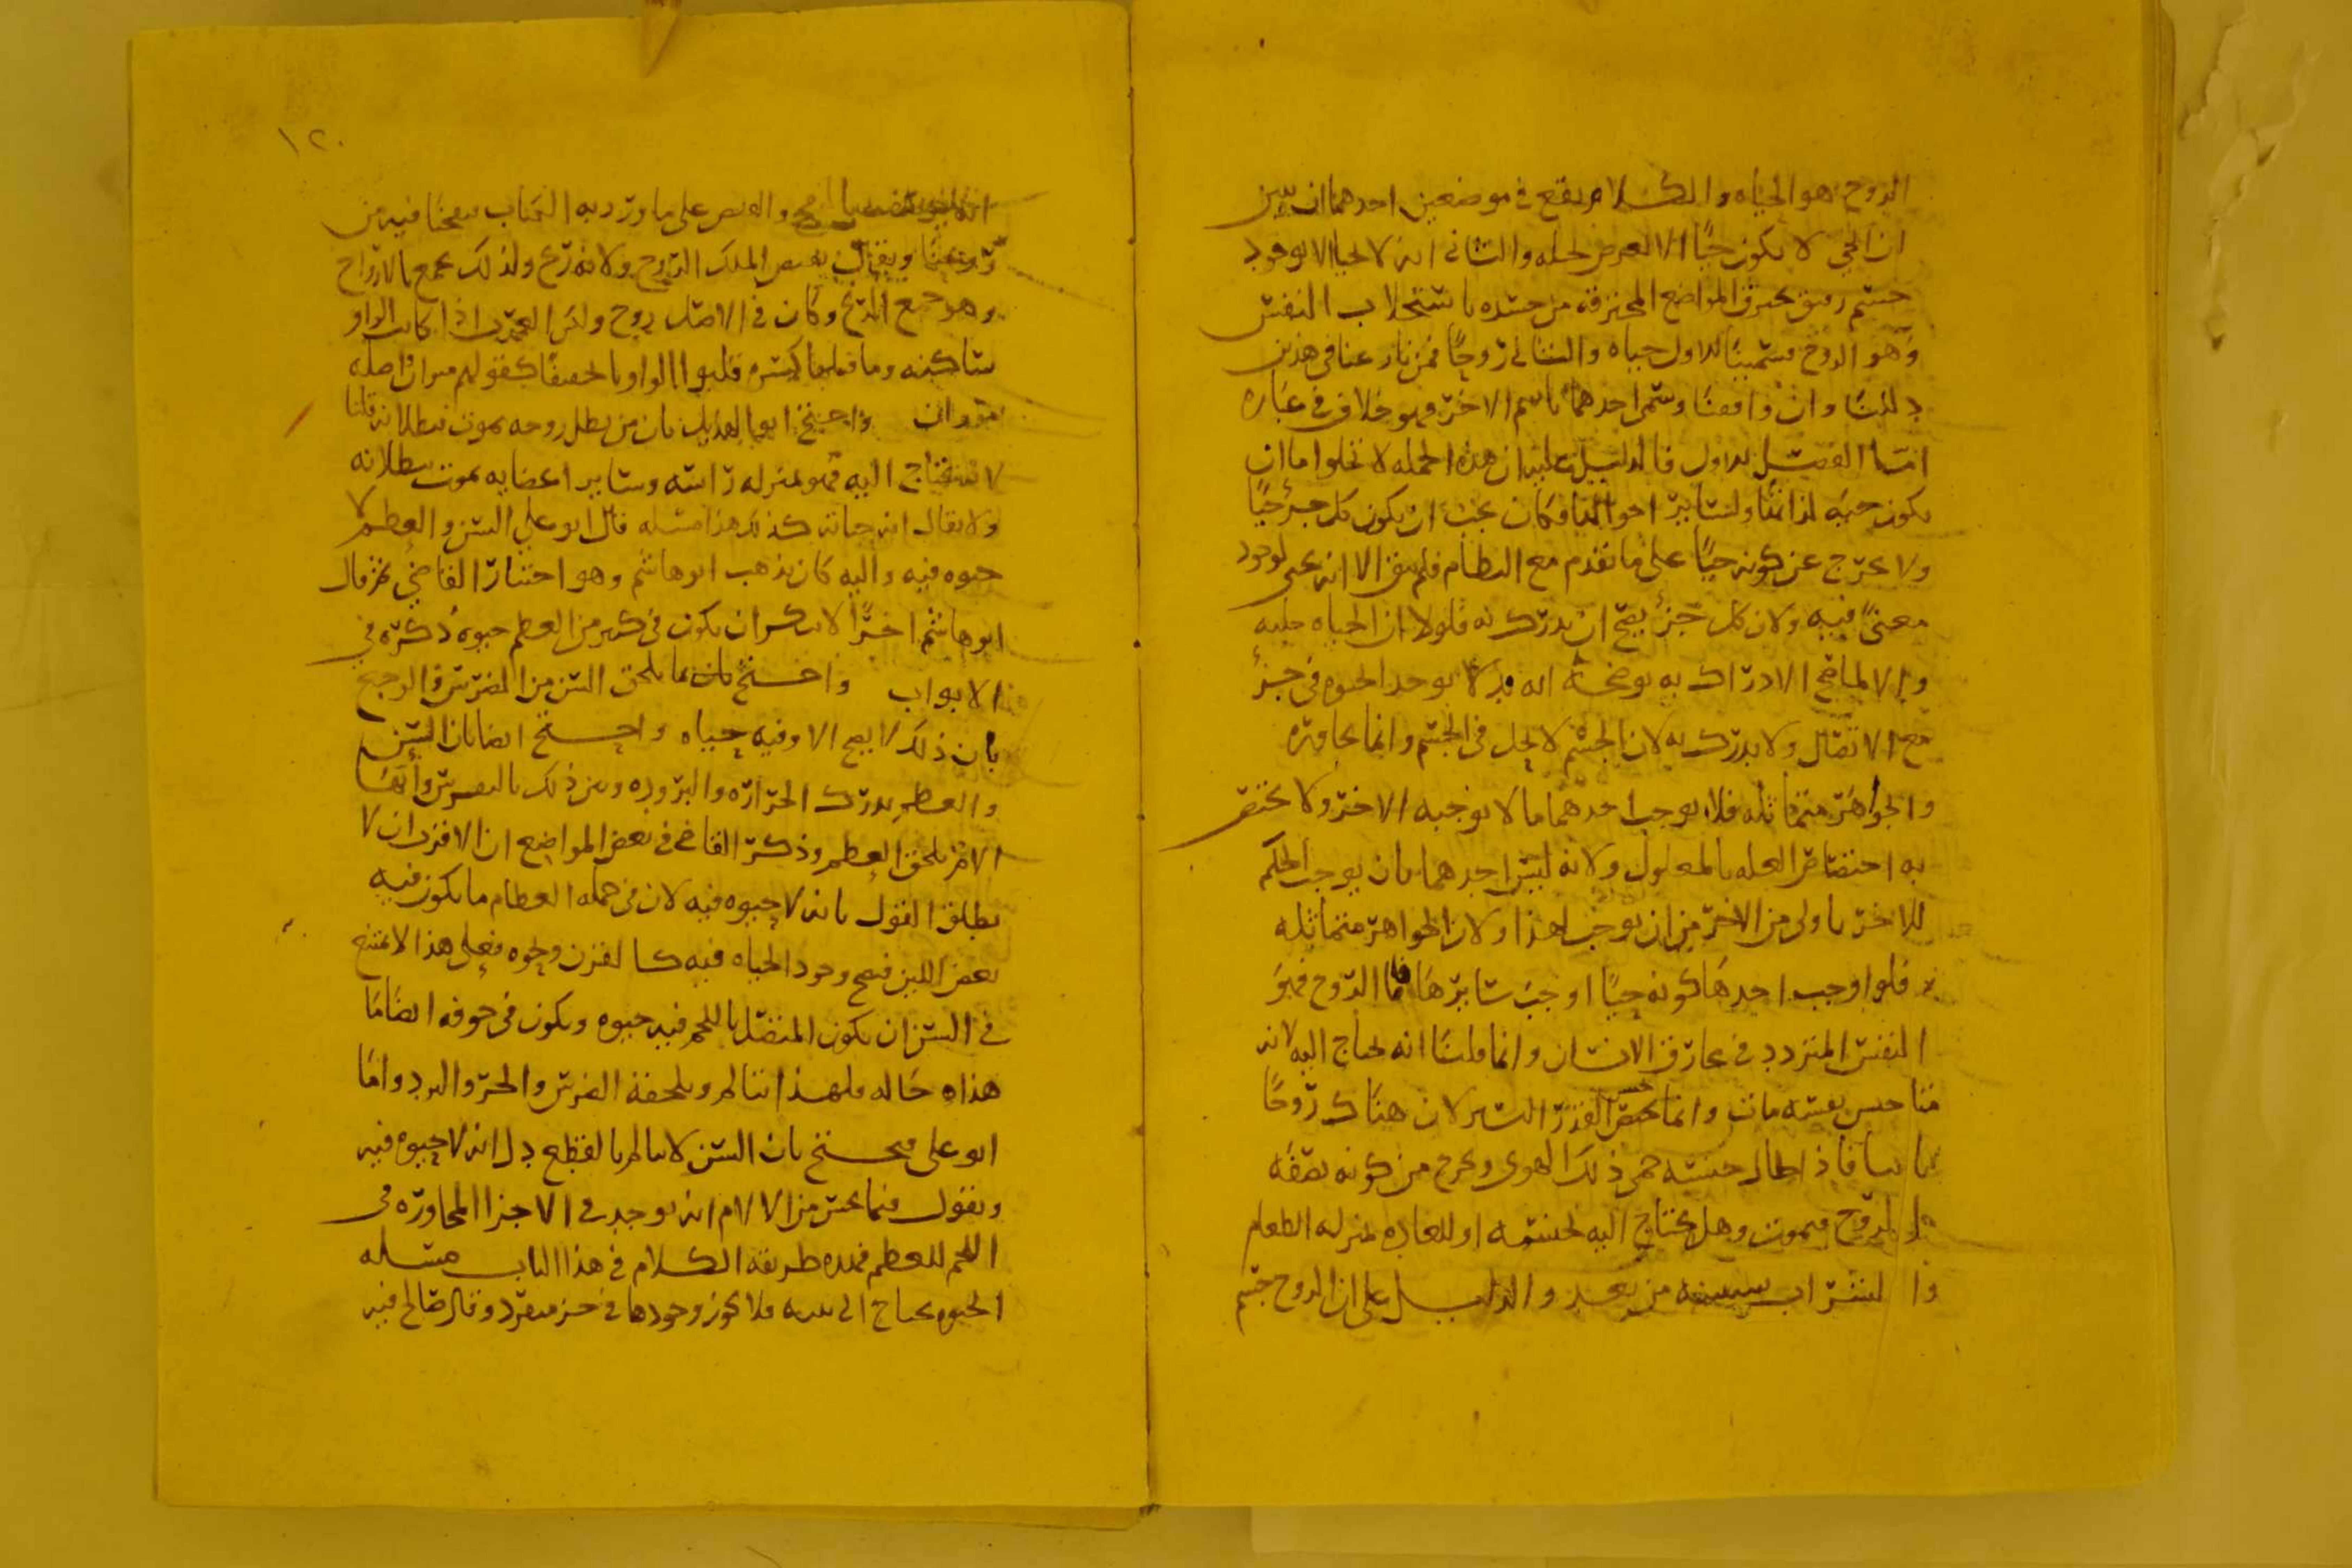 الروح هو الحياه والكلام يقع في موضعين احدهما ان نبين
ان الحي لا يكون حيًا الا لعرض يحله والثاني انه لا يحيا الا بوجود
جسم رقيق يخترق المواضع المخترقة من جسده باستجلاب النفس
وهو الروح فسمينا الاول حياه والثاني روحًا فمن نازعنا في هذين
دللنا وان وافقنا وسمى احدهما باسم الاخر فهو خلاف في عباره
امّا الفصل الاول فالدليل عليه ان هذه الجمله لا تخلوا اما ان
يكون حيّه لذاتها ولساير احوالها فكان يجب ان يكون كل جزء حيًا
ولا يخرج عن كونه حيًا على ما تقدم مع النظام فلم يبق الا انه يحيى لوجود
معنىً فيه ولان كل جزء يصح ان يدرك به فلولا ان الحياه حلته
والا لما صح الادراك به يوضحه انه قد لا يوجد الحيوه في جزء
مع الاتصال ولا يدرك به لان الجسم لا يحل في الجسم وانما يجاوره
والجواهر متماثله فلا يوجب احدهما ما لا يوجبه الاخر ولا يختص
به اختصاص العله بالمعلول ولانه ليس احدهما بان يوجب الحكم
للاخر باولى من الاخر من ان يوجب لهذا ولان الجواهر متماثله
فلو اوجب احدها كونه حيًا اوجب سايرها فاما الروح فهو
النفس المتردد في مخارق الانسان وانما قلنا انه يحتاج اليه لانه
متا حبس نفسه مات وانما يختص القدر اليسير لان هناك روحًا
فاذا طال حبسه حمى ذلك الهوى وخرج من كونه بصفه
الروح فيموت وهل يحتاج اليه لجسمه او للعاده بمنزله الطعام
والشراب سنبينه من بعد والدليل على ان الروح جسم
١٢٠
والنص على ما ورد به الكتاب فنفخنا فيه من
روحنا ويقال الملك الروح ولانه ريح ولذلك يجمع بالارواح
وهو جمع الريح وكان في الاصل روح ولكن العرب اذا كانت الواو
ساكنه وما قبلها كسره قلبوا الواو يا تخفيفًا كقولهم ميزان اصله
موزان واحتج ابو الهذيل بان من بطل روحه يموت ببطلانه قلنا
لانه يحتاج اليه فهو بمنزله راسه وساير اعضايه يموت ببطلانه
ولا يقال انه حياته كذلك هذا مسله قال ابو علي السن والعظم لا
حيوه فيه واليه كان يذهب ابو هاشم وهو اختيار القاضي ثم قال
ابو هاشم اخرًا لا ينكر ان يكون في كثير من العظم حيوه ذكره في
الابواب واحتج بان ما يلحق السن من الضرس والوجع
بان ذلك لا يصح الا وفيه حياه واحتج ايضا بان السن
والعظم يدرك الحراره والبروده وبين ذلك بالضرس وايضا
الالم يلحق العظم وذكر القاضي في بعض المواضع ان الاقرب ان لا
يطلق القول بانه لا حيوه فيه لان في جمله العظام ما يكون فيه
بعض اللين فيصح وجود الحياه فيه كالقرن ونحوه فعلى هذا لا يمتنع
في السن ان يكون المتصل باللحم فيه حيوه ويكون في جوفه ايضا ما
هذاه حاله فلهذا تتالم ويلحقه الضرس والحر والبرد واما
ابو علي فيحتج بان السن لا يتالم بالقطع دل انه لا حيوه فيه
ونقول فيما يحس من الالام انه يوجد في الاجزا المجاوره في
اللحم للعظم فهذه طريقة الكلام في هذا الباب مسله
الحيوه يحتاج الى بنيه فلا يجوز وجودها في جزء منفرد وقال صالح فيه